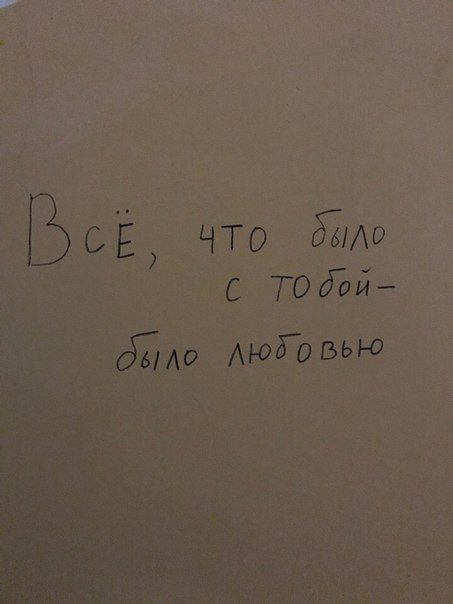 Всё, что было
с тобой–
было любовью